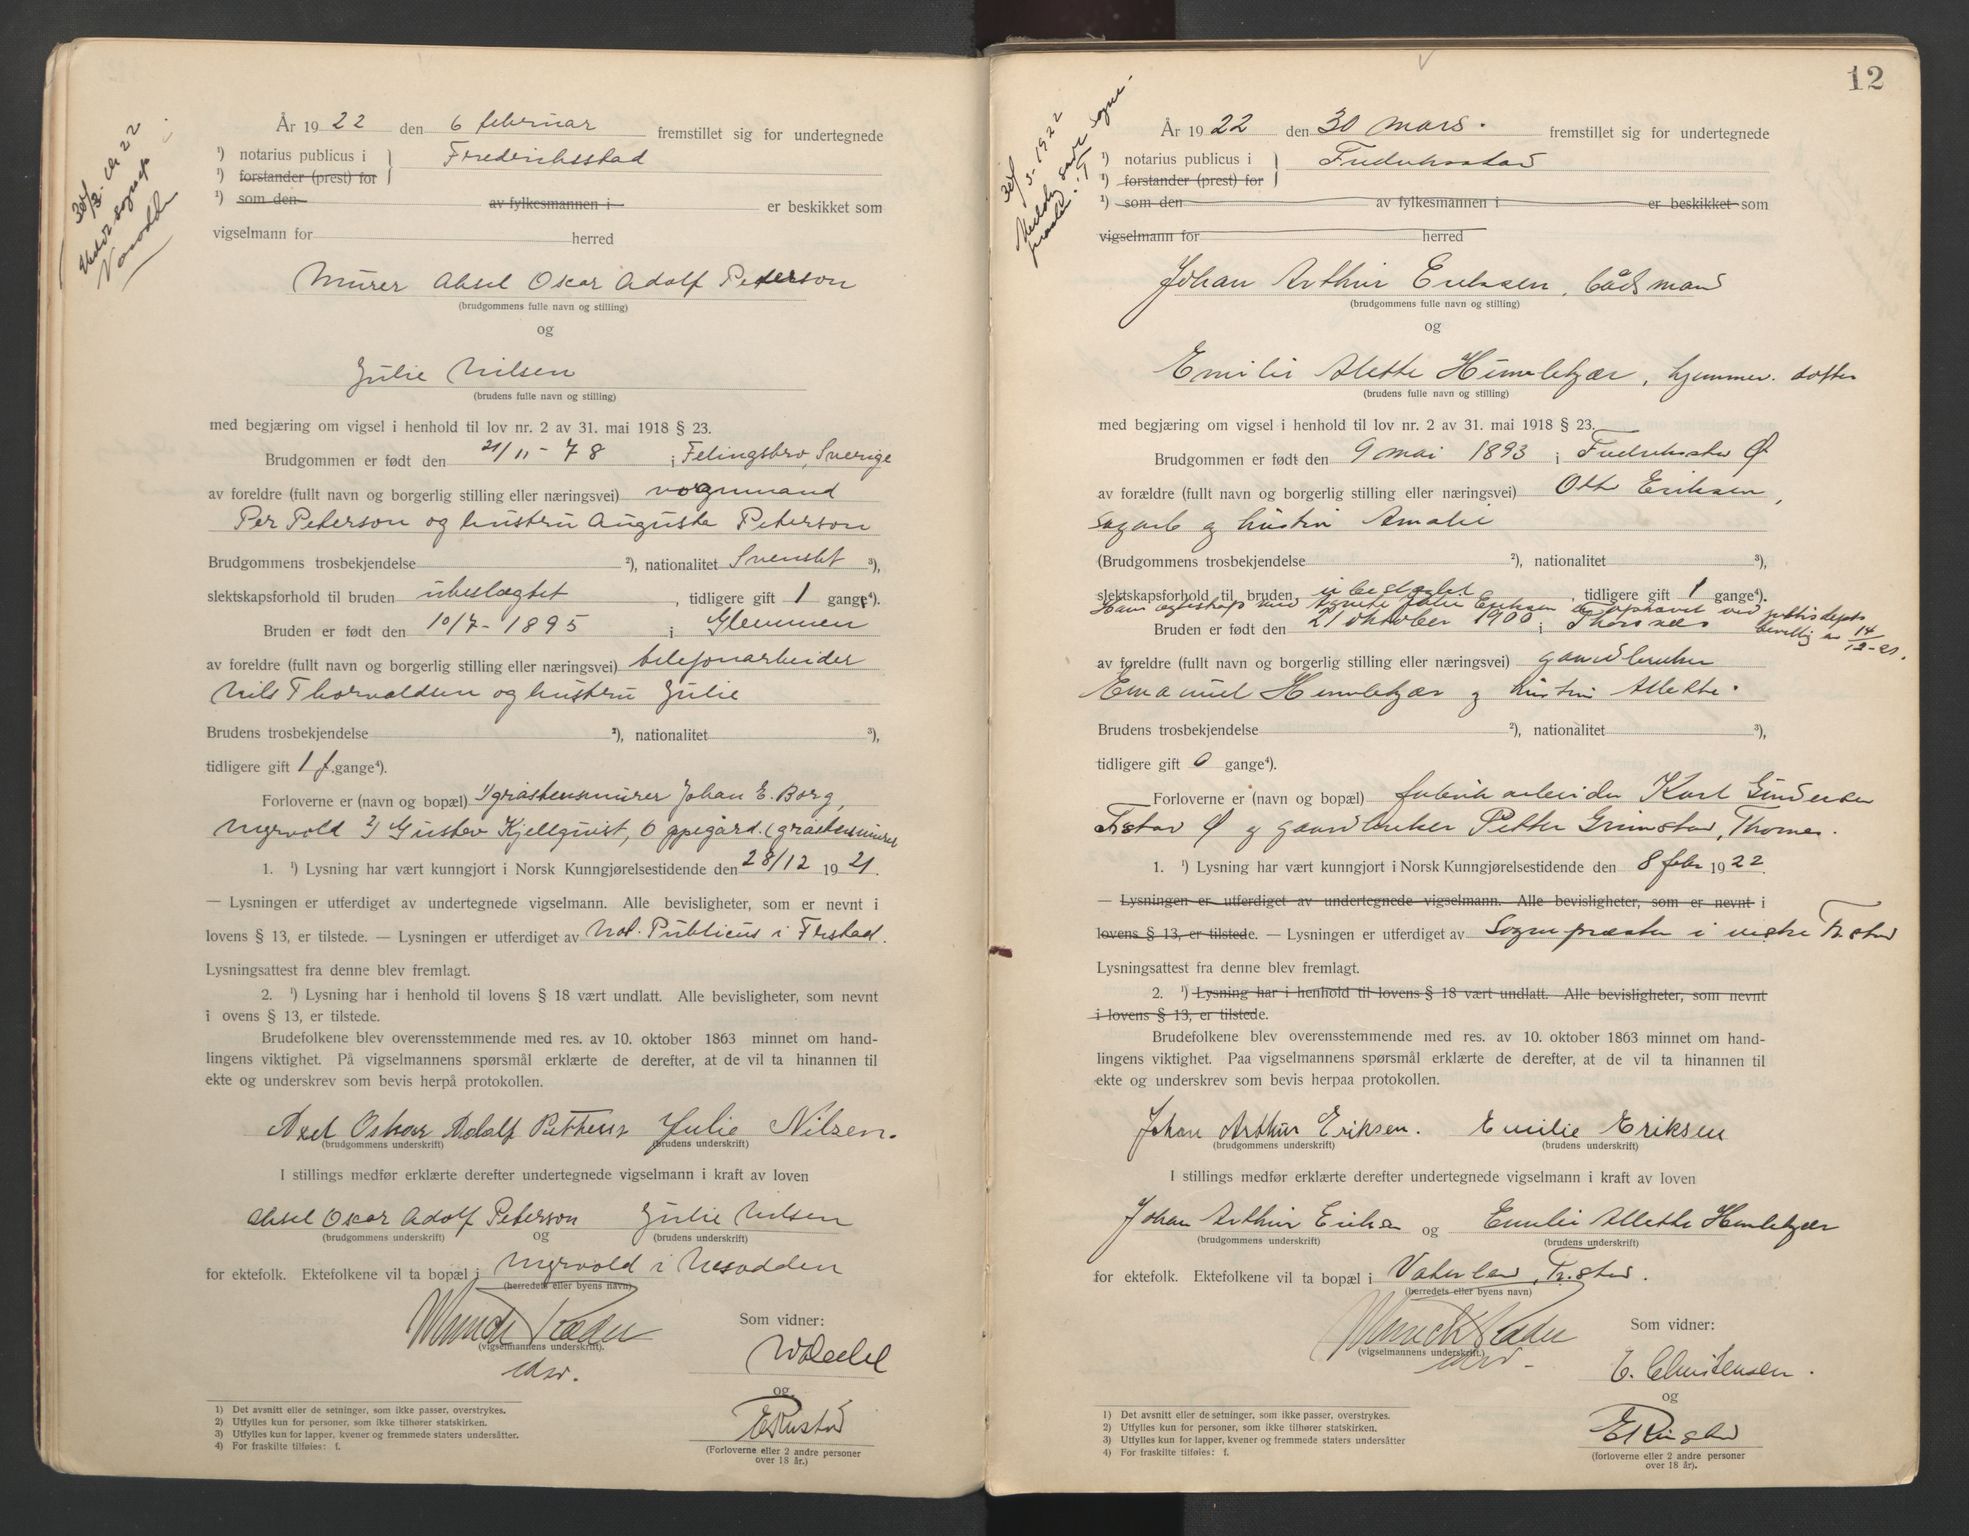 År 1922 den 6 februar fremstillet sig for undertegnede
¹) notarius publicus i } Fredriksstad
¹) forstander (prest) for
¹) som den av fylkesmannen i er beskikket som
vigselmann for herred
Murer Aksel Oscar Adolf Peterson
(brudgommens fulle navn og stilling)
og
Julie Nilsen
(brudens fulle navn og stilling)
med begjæring om vigsel i henhold til lov nr. 2 av 31. mai 1918 § 23.
Brudgommen er født den 21/11 - 78 i Felingsbro, Sverige
av foreldre (fullt navn og borgerlig stilling eller næringsvei) vognmand
Per Peterson og hustru Augusta Peterson
Brudgommens trosbekjendelse ²), nationalitet Svensk ³),
slektskapsforhold til bruden ubeslægtet, tidligere gift 1 gange⁴).
Bruden er født den 10/7 - 1895 i Glemmen
av foreldre (fullt navn og borgerlig stilling eller næringsvei) telefonarbeider
Nils Thorvaldsen og hustru Julie
Brudens trosbekjendelse ²), nationalitet ³),
tidligere gift 1 f. gange⁴).
Forloverne er (navn og bopæl) 1) gråstensmurer Johan E. Borg,
Myrvold 2) Gustav Kjellquist, Oppegård. (gråstensmurer
1. ¹) Lysning har vært kunngjort i Norsk Kunngjørelsestidende den 28/12 1921.
— Lysningen er utferdiget av undertegnede vigselmann. Alle bevisligheter, som er nevnt i
lovens § 13, er tilstede. — Lysningen er utferdiget av Not. Publicus i Frstad.
Lysningsattest fra denne blev fremlagt.
2. ¹) Lysning har i henhold til lovens § 18 vært undlatt. Alle bevisligheter, som nevnt
i ovens § 13, er tilstede.
Brudefolkene blev overensstemmende med res. av 10. oktober 1863 minnet om hand-
lingens viktighet. På vigselmannens spørsmål erklærte de derefter, at de vil ta hinannen til
ekte og underskrev som bevis herpå protokollen.
Axel Oskar Adolf Julie Nilsen.
(brudgommens underskrift) (brudens underskrift)
I stillings medfør erklærte derefter undertegnede vigselmann i kraft av loven
Aksel Oscar Adolf Peterson Julie Nilsen
(brudgommens underskrift) og (brudens underskrift)
for ektefolk. Ektefolkene vil ta bopæl i Myrvold i Nesodden
(herredets eller byens navn)
(vigselmannens underskrift).
Som vidner:
og
(Forloverne eller 2 andre personer
over 18 år.)
1) Det avsnitt eller de setninger, som ikke passer, overstrykes.
2) Utfylles kun for personer, som ikke tilhører statskirken.
3) Utfylles kun for lapper, kvener og fremmede staters undersåtter.
4) For fraskilte tilføies: f.
12
År 1922 den 30 mars. fremstillet sig for undertegnede
¹) notarius publicus i } Fredriksstad
¹) forstander (prest) for
¹) som den av fylkesmannen i er beskikket som
vigselmann for herred
Johan Arthur Eriksen, båtsmand
(brudgommens fulle navn og stilling)
og
Emilie Alette Humlekjær, hjemmev. datter
(brudens fulle navn og stilling)
med begjæring om vigsel i henhold til lov nr. 2 av 31. mai 1918 § 23.
Brudgommen er født den 9 mai 1893 i Fredriksstad Ø
av forældre (fullt navn og borgerlig stilling eller næringsvei) Otto Eriksen,
sagarb og hustru Amalie
(Brudgommens trosbekjendelse ²), nationalitet ³),
slektskapsforhold til bruden, ubeslægtet, tidligere gift 1 gange⁴).
Hans egteskap med Agnete Julie Eriksen er ophævet ved justisdepts bevilling av 14/12-21.
Bruden er født den 21 oktober 1900 i Thorsnes
av foreldre (fullt navn og borgerlig stilling eller næringsvei) gaardbruker
Emanuel Humlekjær og hustru Allette.
Brudens trosbekjendelse ²), nationalitet ³),
tidligere gift 0 gange⁴).
Forloverne er (navn og bopæl) fabrikarbeider Karl Gundersen
Frstad Ø og gaardbruker Petter Grimstad, Thorsnes.
1. ¹) Lysning har vært kunngjort i Norsk Kunngjørelsestidende den 8 febr 1922
— Lysningen er utferdiget av undertegnede vigselmann. Alle bevisligheter, som er nevnt i
lovens § 13, er tilstede. — Lysningen er utferdiget av Sognepræsten i vestre Fr.stad
Lysningsattest fra denne blev fremlagt.
2. ¹) Lysning har i henhold til lovens § 18 vært undlatt. Alle bevisligheter, som nevnt
i lovens § 13, er tilstede.
Brudefolkene blev overensstemmende med res. av 10. oktober 1863 minnet om hand-
lingens viktighet. Paa vigselmannens spørsmål erklærte de derefter, at de vil ta hinannen til
ekte og underskrev som bevis herpaa protokollen.
Johan Arthur Eriksen. Emilie Eriksen
(brudgommens underskrift) (brudens underskrift)
I stillings medfør erklærte derefter undertegnede vigselmann i kraft av loven
Johan Arthur Eriksen og Emilie Allette Humlekjær
(brudgommens underskrift) (brudens underskrift)
for ektefolk. Ektefolkene vil ta bopæl i Vaterland, Fr.stad.
(herredets eller byens navn)
(vigselmannens underskrift.)
Som vidner:
E. Christensen.
og
(forloverne eller 2 andre personer
over 18 år).
1) Det avsnitt eller de setninger, som ikke passer, overstrykes.
2) Utfylles kun for personer, som ikke tilhører statskirken.
3) Utfylles kun for lapper, kvener og fremmede staters undersåtter
4) For fraskilte tilføies: f.